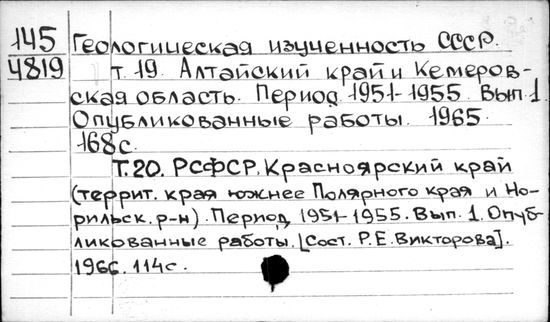 145
4819
Геологическая изученность СССР.
т. 19. Алтайский край и Кемеров-
ская область. Период 1951-1955. Вып. 1.
Опубликованные работы. 1965.
168 с.
Т. 20. РСФСР. Красноярский край
(террит. края южнее Полярного края и Но-
рильск. р-н). Период 1951-1955. Вып. 1. Опуб-
ликованные работы. [Сост. Р.Е. Викторова].
1966. 114 с.